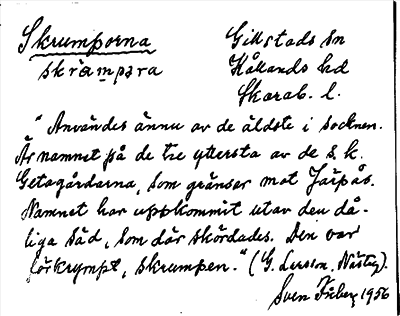 Skrumporna Gillstads sn
skrəmpəra Kållands hd
Skarab. l.
"Användes ännu av de äldste i socknen.
Är namnet på de tre yttersta av de s.k.
Getagårdarna, som gränser mot Järpås.
Namnet har uppkommit utav den då-
liga säd, som där skördades. Den var
"förkrympt, skrumpen." (G. Larson, Nästeg).
Sven Fåberg 1956